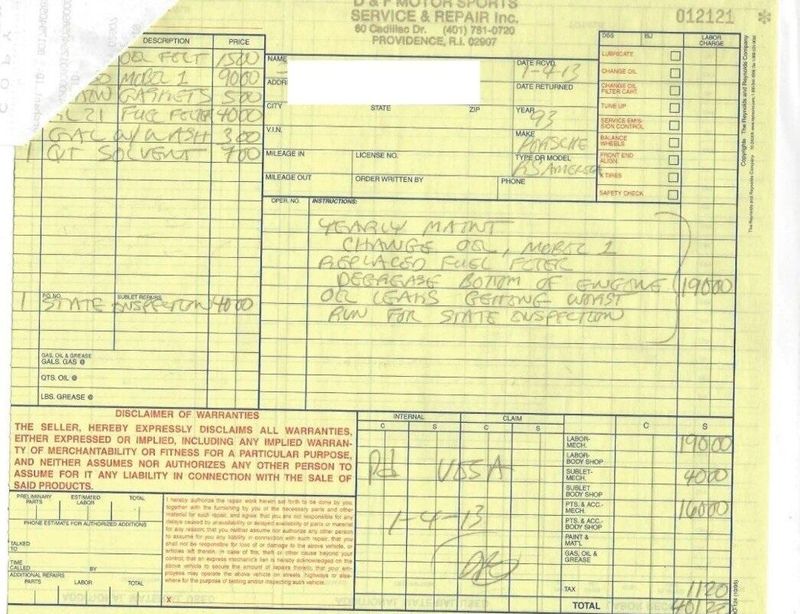 D & F MOTOR SPORTS
SERVICE & REPAIR Inc.
60 Cadillac Dr. (401) 781-0720
PROVIDENCE, R.I. 02907
012121
DESCRIPTION PRICE
OIL FILT 1500
MOBIL 1 9000
GASKETS 500
FUEL FILTER 4000
1 GAL W/WASH 300
1 QT SOLVENT 700
P.O. NO. SUBLET REPAIRS
1 STATE INSPECTION 4000
GAS, OIL & GREASE
GALS. GAS @
QTS. OIL @
LBS. GREASE @
NAME
DATE RCVD.
1-4-13
ADDR
DATE RETURNED
CITY STATE ZIP
YEAR
93
V.I.N.
MAKE
PORSCHE
MILEAGE IN LICENSE NO.
TYPE OR MODEL
RS AMERICA
MILEAGE OUT ORDER WRITTEN BY PHONE
LABOR CHARGE
LUBRICATE
CHANGE OIL
CHANGE OIL
FILTER CART.
TUNE UP
SERVICE EMIS-
SION CONTROL
BALANCE
WHEELS
FRONT END
ALIGN.
X TIRES
SAFETY CHECK
OPER. NO. INSTRUCTIONS:
YEARLY MAINT
CHANGE OIL, MOBIL 1
REPLACED FUEL FILTER
DEGREASE BOTTOM OF ENGINE 19000
OIL LEAKS GETTING WORST
RUN FOR STATE INSPECTION
DISCLAIMER OF WARRANTIES
THE SELLER, HEREBY EXPRESSLY DISCLAIMS ALL WARRANTIES,
EITHER EXPRESSED OR IMPLIED, INCLUDING ANY IMPLIED WARRAN-
TY OF MERCHANTABILITY OR FITNESS FOR A PARTICULAR PURPOSE,
AND NEITHER ASSUMES NOR AUTHORIZES ANY OTHER PERSON TO
ASSUME FOR IT ANY LIABILITY IN CONNECTION WITH THE SALE OF
SAID PRODUCTS.
PRELIMINARY PARTS ESTIMATED LABOR TOTAL
PHONE ESTIMATE FOR AUTHORIZED ADDITIONS
TALKED TO
TIME CALLED BY
ADDITIONAL REPAIRS
PARTS LABOR TOTAL
I hereby authorize the repair work herein set forth to be done by you,
together with the furnishing by you of the necessary parts and other
material for such repair, and agree that you are not responsible for any
delays caused by unavailability or delayed availability of parts or material
for any reason; that you neither assume nor authorize any other person
to assume for you any liability in connection with such repair; that you
shall not be responsible for loss of or damage to the above vehicle, or
articles left therein, in case of fire, theft or other cause beyond your
control; that an express mechanic's lien is hereby acknowledged on the
above vehicle to secure the amount of repairs thereto; that your em-
ployees may operate the above vehicle on streets, highways or else-
where for the purpose of testing and/or inspecting such vehicle.
X
INTERNAL CLAIM
C S C S
Pd VISA
1-4-13
C S
LABOR-
MECH. 19000
LABOR-
BODY SHOP
SUBLET-
MECH. 4000
SUBLET
BODY SHOP
PTS. & ACC.-
MECH. 16000
PTS. & ACC.-
BODY SHOP
PAINT &
MAT'L
GAS, OIL &
GREASE
TAX 1120
TOTAL 40120